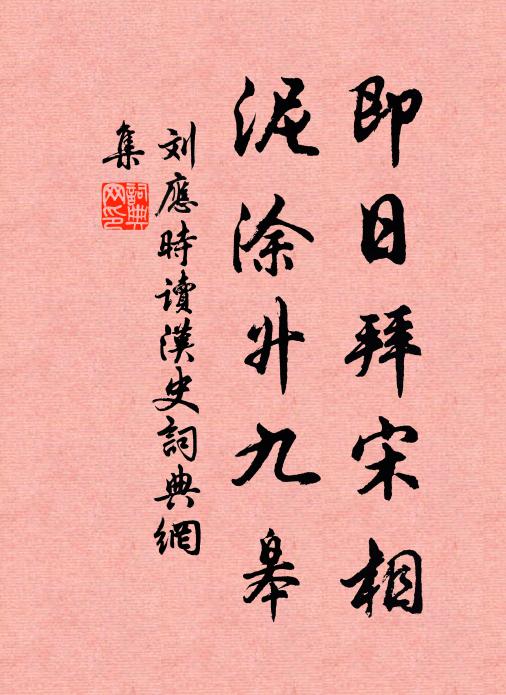 即日拜宋相
泥涂升九皋
刘應時讀漢史詞典網
集
詞典網印